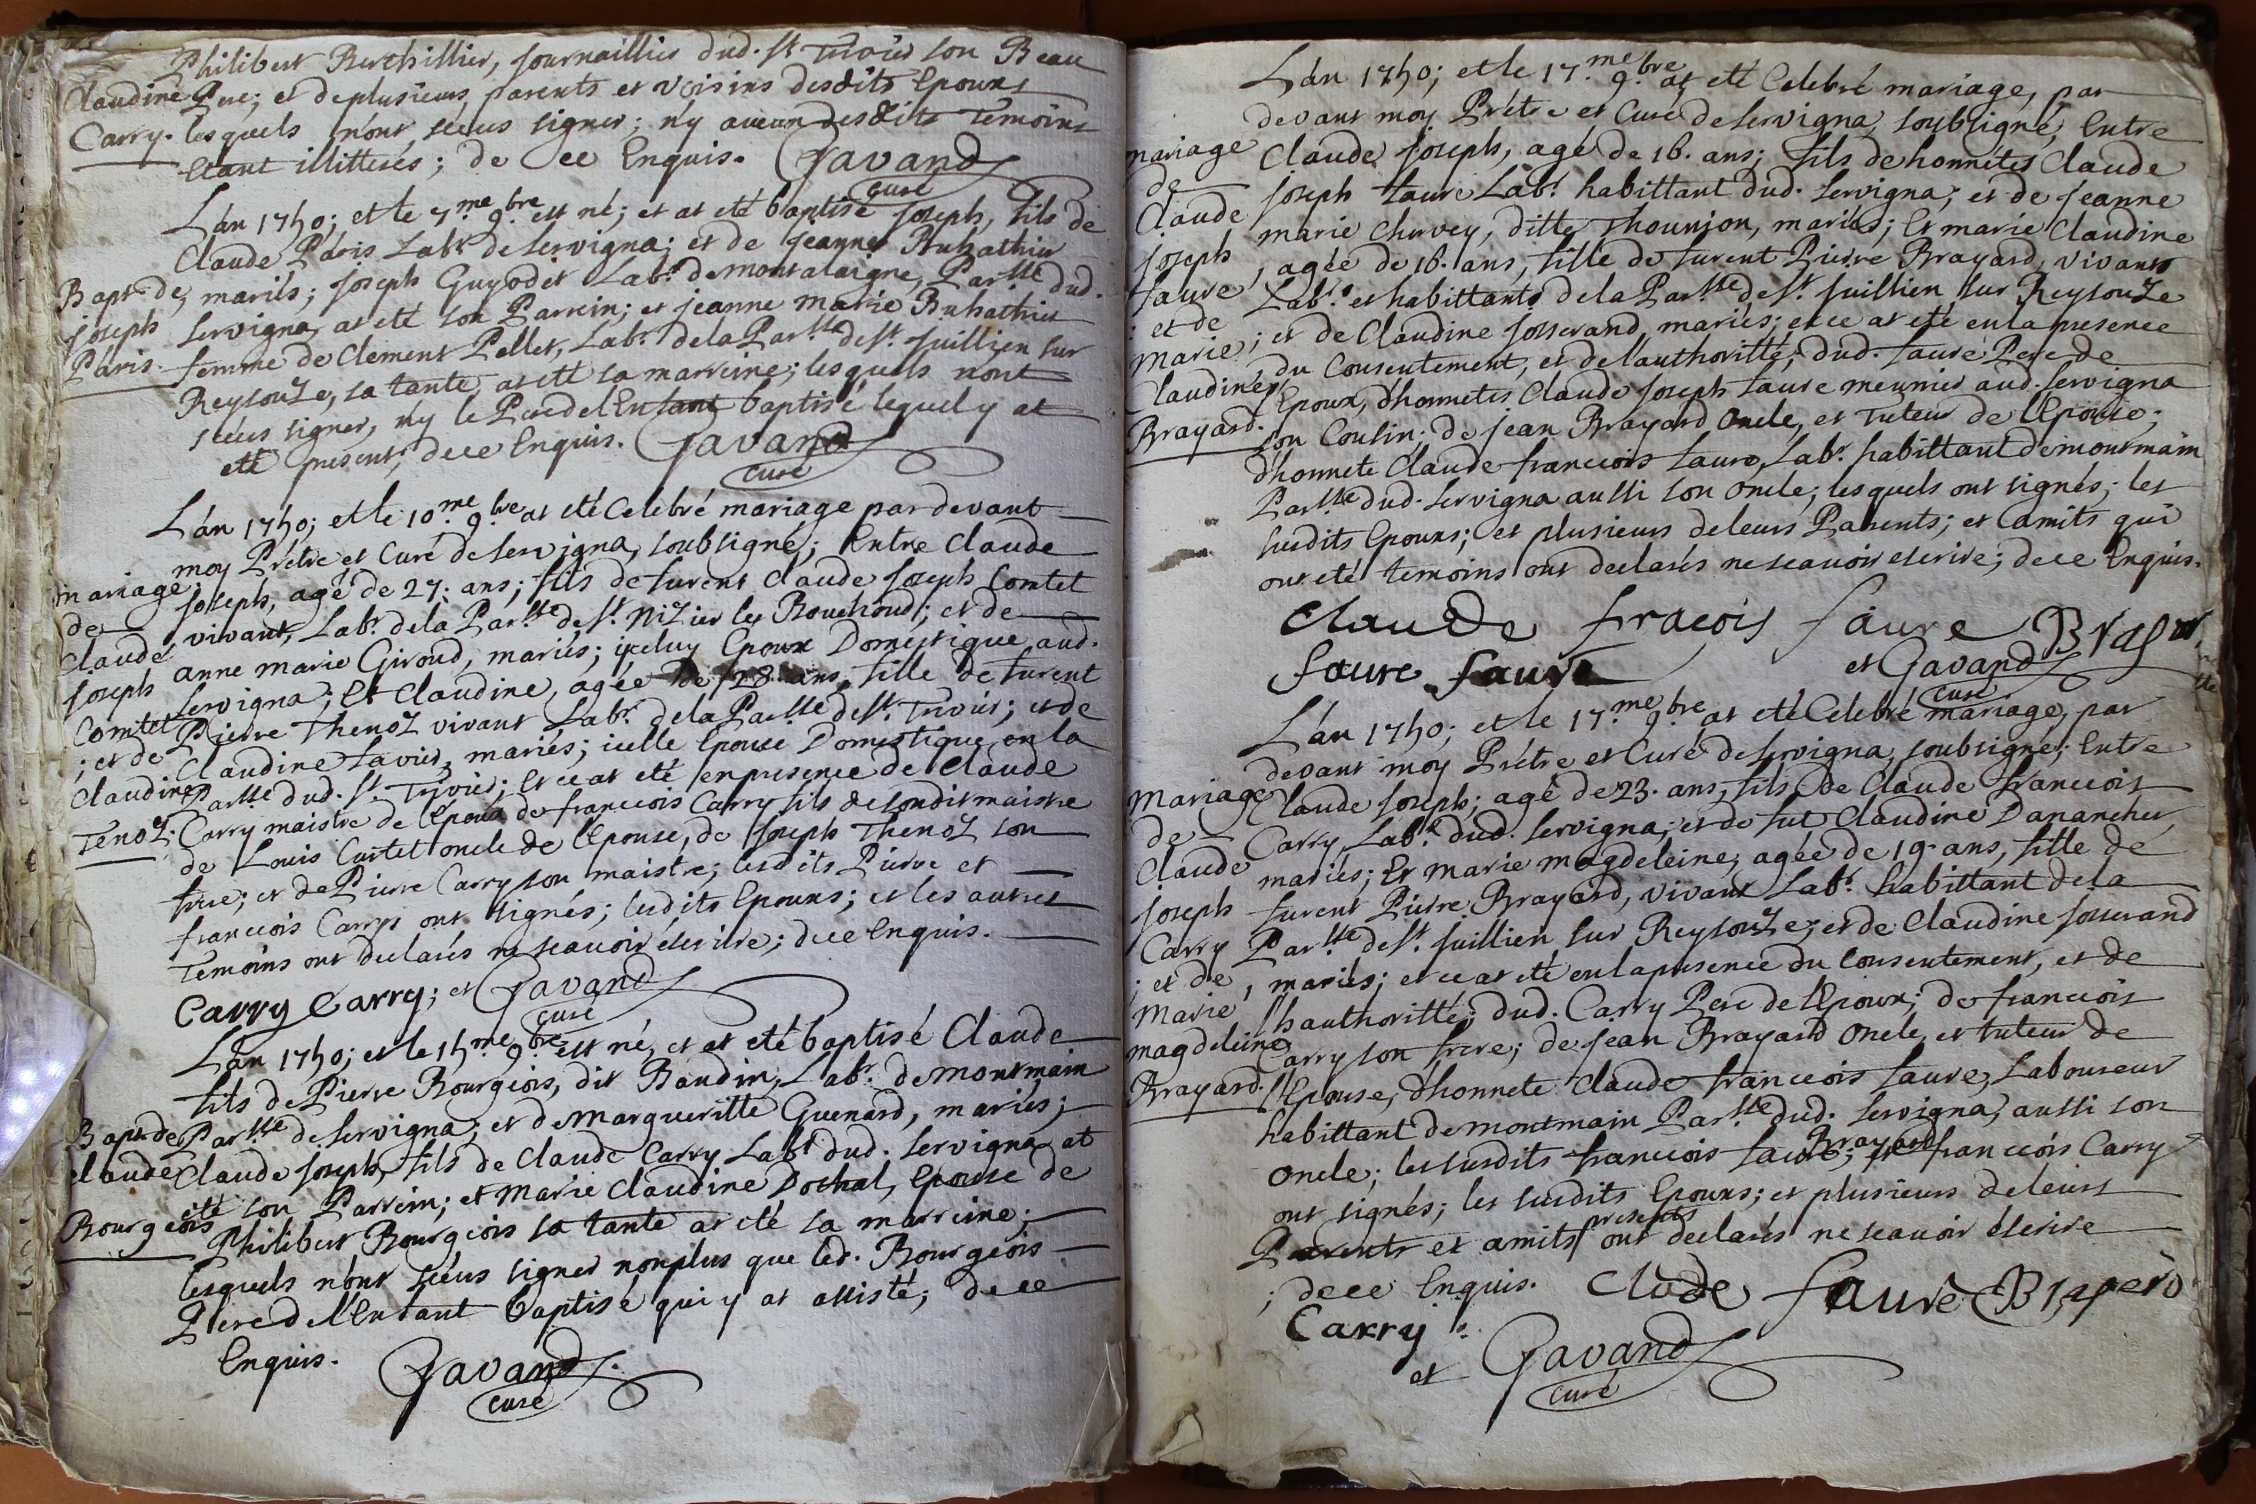 Philibert Berthillier, Journaillier dud. St Trivier son Beau
Claudine Pere; et de plusieurs parents et voisins desdits Epoux
Carry. lesquels n'ont sceus signer; n'y aucun desdits Temoins
Etant illitterés; de ce Enquis. Gavand
curé
L'án 1750; et le 7.me 9.bre est né; et at eté baptisé Joseph, fils de
Claude Páris Labr. de Servigna; et de Jeanne
Bapt. de mariés; Joseph Guyodet Labr. de montalaigne, Par.sse dud.
Joseph Servigna, at eté son Parrein; et jeanne marie
Páris. femme de Clement Pellet, Labr. de la Par.sse de St. Juillien sur
Reysouze, sa tante, at eté sa marreine; lesquels n'ont
sceus signer, n'y le Pere de l'Enfant baptisé lequel y at
eté present, de ce Enquis. Gavand
curé
L'án 1750; et le 10.me 9.bre at eté Celebré mariage par devant
moy Prétre et Curé de Servigna, soubsigné; Entre Claude
mariage Joseph, agé de 27. ans; fils de furent Claude Joseph Comtet
de vivant, Labr. de la Par.sse de St. Nizier les Bouchoud; et de
Claude anne marie Giroud, mariés; iceluy Epoux Domestique aud.
Joseph Servigna; Et Claudine, agée de 28. ans, fille de furent
Comtet Pierre Thenoz vivant Labr. de la Par.sse de St. Trivier; et de
; et de Claudine favier, mariés; icelle Epouse Domestique en la
Claudine Par.sse dud. St. Trivier; Et ce at eté en presence de Claude
Tenoz. Carry maistre de l'Epoux de francois Carry fils de sondit maistre
de Louis Curtet oncle de l'Epouse, de Joseph Thenoz son
frere; et de Pierre Carry son maistre; lesdits Pierre et
francois Carrys ont signés; lesdits Epoux; et les autres
Temoins ont declarés ne scavoir éscrire; de ce Enquis.
Carry Carry; et Gavand
curé
L'án 1750; et le 15.me 9.bre est né, et at eté baptisé Claude
fils de Pierre Bourgeois, dit Baudin, Labr. de montmain
Bapt. de Par.sse de Servigna; et de margueritte Guenard, mariés;
Claude Claude Joseph, fils de Claude Carry Labr. dud. Servigna at
Bourgeois eté son Parrein; et Marie Claudine Dochal, Epouse de
Philibert Bourgeois sa tante at eté sa marreine;
lesquels n'ont sceus signer nonplus que led. Bourgeois
Pere de l'Enfant baptisé qui y at assisté; de ce
Enquis. Gavand
curé
L'án 1750; et le 17.me 9.bre at eté Celebré mariage, par
devant moy Prétre et Curé de Servigna, soubsigné; Entre
mariage Claude Joseph, agé de 16. ans; fils de honnétes Claude
de Joseph faure Labr. habittant dud. Servigna; et de Jeanne
Claude marie Chervey, ditte Thounion, mariés; Et marie Claudine
Joseph , agée de 16. ans, fille de furent Pierre Brayard, vivants
faure Labr. et habittants de la Par.sse de St. Juillien sur Reysouze
; et de ; et de Claudine Josserand, mariés; et ce at eté en la presence
Marie , du Consentement, et de l'authoritté, dud. faure Pere de
Claudine l'Epoux, d'honnetes Claude Joseph faure meunier aud. Servigna
Brayard. son Cousin; de jean Brayard Oncle, et Tuteur de l'Epouse;
d'honnete Claude francois faure, Labr. habittant de montmain
Par.sse dud. Servigna aussi son oncle; lesquels ont signés; les
susdits Epoux; et plusieurs de leurs Parents; et amits qui
ont eté temoins ont declarés ne scavoir escrire; de ce Enquis.
Claude fracois faure
faure faure et Gavand
curé
L'án 1750; et le 17.me 9.bre at eté Celebré mariage, par
devant moy Prétre et Curé de Servigna, soubsigné; Entre
Mariage Claude Joseph; agé de 23. ans, fils de Claude francois
de Carry, Labr. dud. Servigna; et de fut Claudine Danancher
Claude mariés; Et Marie magdeleine, agée de 19. ans, fille de
Joseph furent Pierre Brayard, vivant Labr. habittant de la
Carry Par.sse de St. Juillien sur Reysouze; et de Claudine Josserand
; et de , mariés; et ce at eté en la presence du Consentement, et de
Marie l'hauthoritté; dud. Carry Pere de l'Epoux; de francois
magdeleine Carry son frere; de jean Brayard Oncle, et tuteur de
Brayard. l'Epouse, d'honnete Claude francois faure, Laboureur
habittant de montmain Par.sse dud. Servigna, aussi son
Oncle; les susdits francois faure; Brayard et francois Carry
ont signés; les susdits Epoux; et plusieurs de leurs
Parents et amits presents ont declarés ne scavoir éscrire
; de ce Enquis. Clude faure
Carry
et Gavand
curé